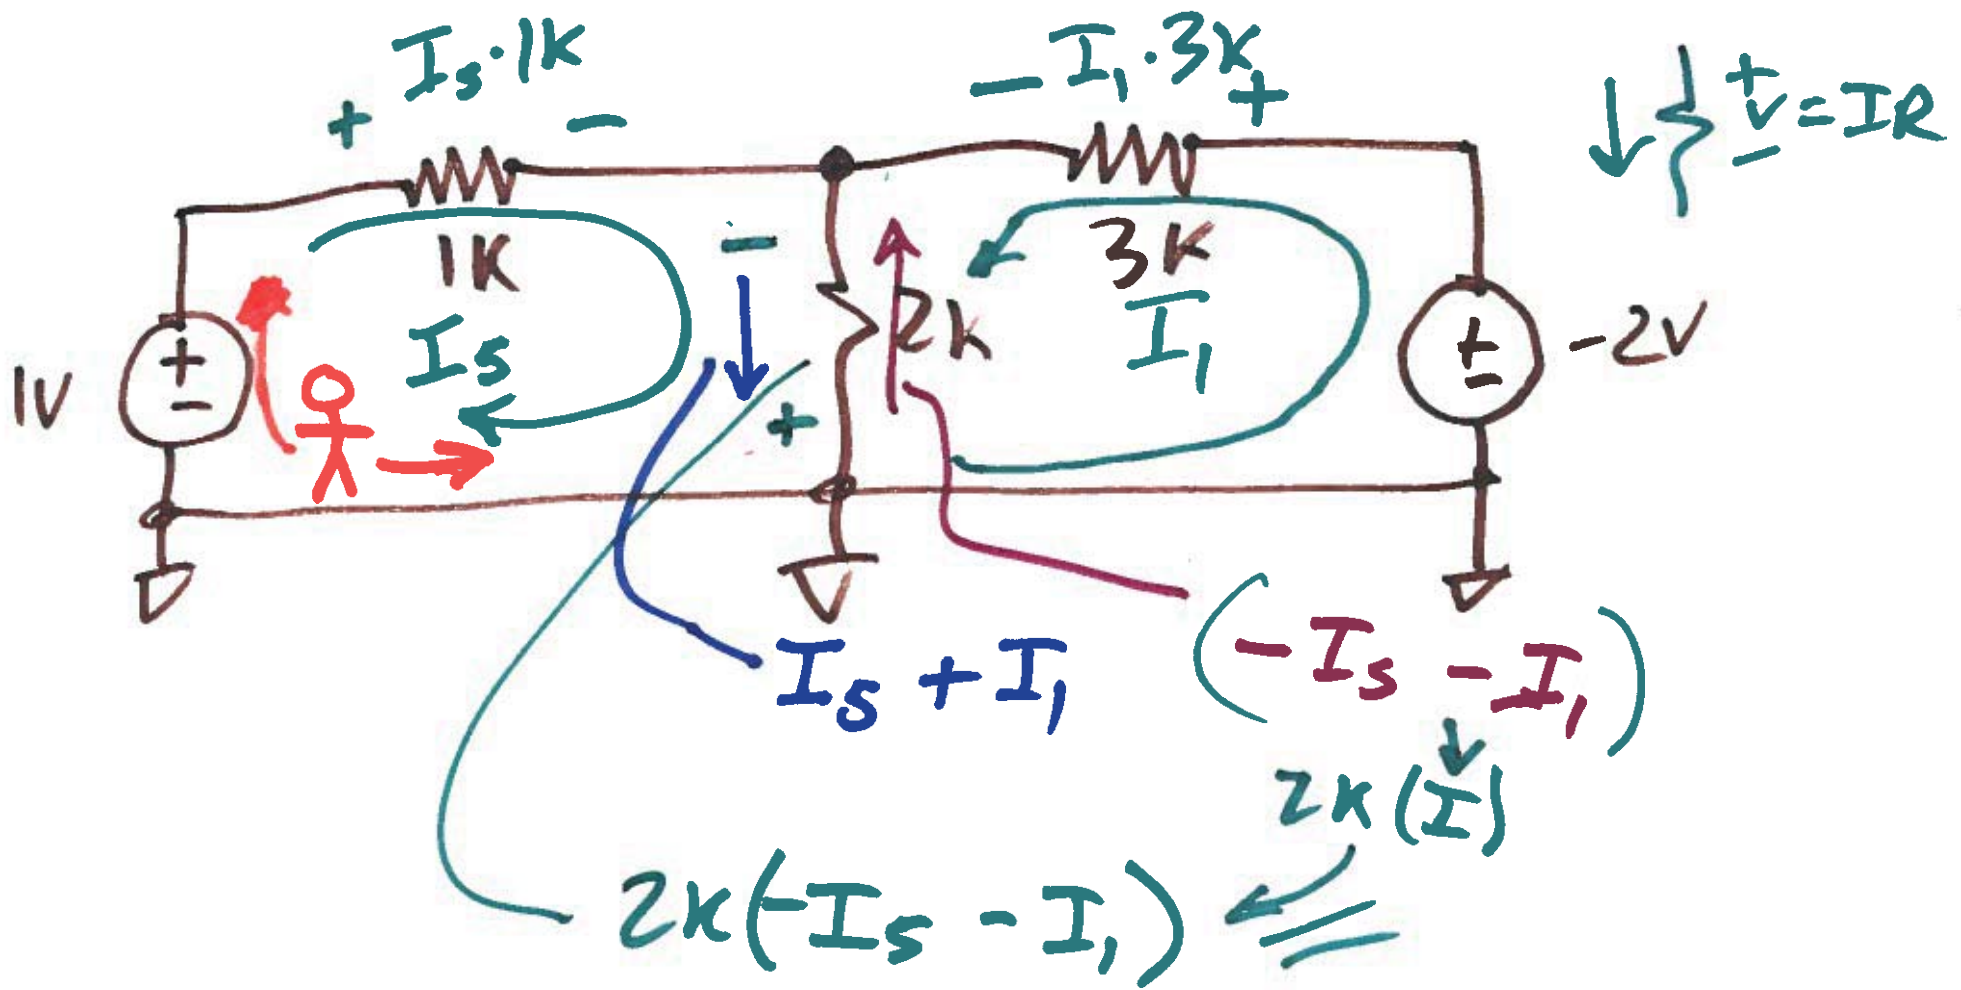 Is·1K
− I1·3K +
+ −
+ V = IR
−
1K
−
3K
1V
+
−
Is
2K
I1
+
−
-2V
+
Is + I1
(-Is - I1)
2K(I)
2K(-Is - I1)